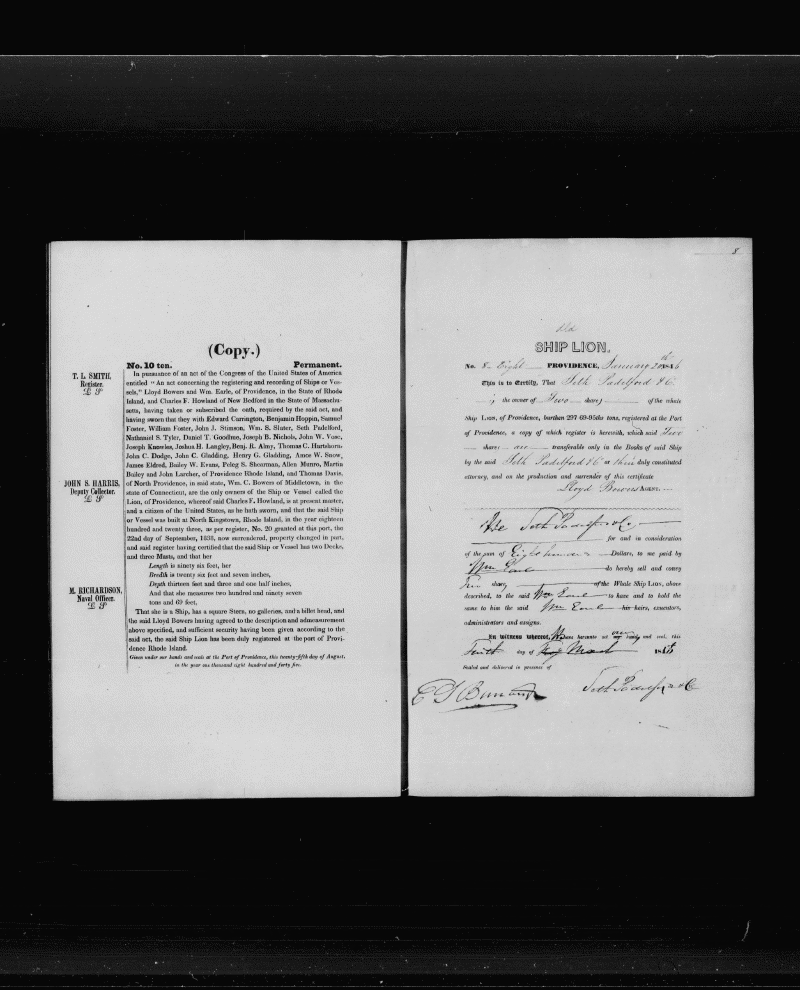 (Copy.)
No. 10 ten. Permanent.
T. L. SMITH,
Register.
L S
JOHN S. HARRIS,
Deputy Collector.
L S
M. RICHARDSON,
Naval Officer.
L S
In pursuance of an act of the Congress of the United States of America
entitled "An act concerning the registering and recording of Ships or Ves-
sels," Lloyd Bowers and Wm. Earle, of Providence, in the State of Rhode
Island, and Charles F. Howland of New Bedford in the State of Massachu-
setts, having taken or subscribed the oath, required by the said act, and
having sworn that they with Edward Carrington, Benjamin Hoppin, Samuel
Foster, William Foster, John J. Stimson, Wm. S. Slater, Seth Padelford,
Nathaniel S. Tyler, Daniel T. Goodhue, Joseph B. Nichols, John W. Vose,
Joseph Knowles, Joshua H. Langley, Benj. R. Almy, Thomas C. Hartshorn,
John C. Dodge, John C. Gladding, Henry G. Gladding, Amos W. Snow,
James Eldred, Bailey W. Evans, Peleg S. Shearman, Allen Munro, Martin
Bailey and John Larcher, of Providence Rhode Island, and Thomas Davis,
of North Providence, in said state, Wm. C. Bowers of Middletown, in the
state of Connecticut, are the only owners of the Ship or Vessel called the
Lion, of Providence, whereof said Charles F. Howland, is at present master,
and a citizen of the United States, as he hath sworn, and that the said Ship
or Vessel was built at North Kingstown, Rhode Island, in the year eighteen
hundred and twenty three, as per register, No. 20 granted at this port, the
22nd day of September, 1838, now surrendered, property changed in part,
and said register having certified that the said Ship or Vessel has two Decks,
and three Masts, and that her
Length is ninety six feet, her
Bredth is twenty six feet and seven inches,
Depth thirteen feet and three and one half inches,
And that she measures two hundred and ninety seven
tons and 69 feet.
That she is a Ship, has a square Stern, no galleries, and a billet head, and
the said Lloyd Bowers having agreed to the description and admeasurement
above specified, and sufficient security having been given according to the
said act, the said Ship Lion has been duly registered at the port of Provi-
dence Rhode Island.
Given under our hands and seals at the Port of Providence, this twenty-fifth day of August,
in the year one thousand eight hundred and forty five.
8
Old
SHIP LION.
No. 8 Eight PROVIDENCE, January 20th 1846
This is to Certify, That Seth Padelford & C
is the owner of Two shares of the whole
Ship LION, of Providence, burthen 297 69-95ths tons, registered at the Port
of Providence, a copy of which register is herewith, which said Two
shares are transferable only in the Books of said Ship
by the said Seth Padelford & C or their duly constituted
attorney, and on the production and surrender of this certificate
Lloyd Bowers AGENT.
We Seth Padelford & Co
for and in consideration
of the sum of Eight hundred Dollars, to me paid by
Wm Earle do hereby sell and convey
Two shares of the Whole Ship LION, above
described, to the said Wm Earle to have and to hold the
same to him the said Wm Earle his heirs, executors,
administrators and assigns.
In Witness whereof, We have hereunto set our hand and seal, this
day of March 184
Sealed and delivered in presence of
Seth Padelford & Co